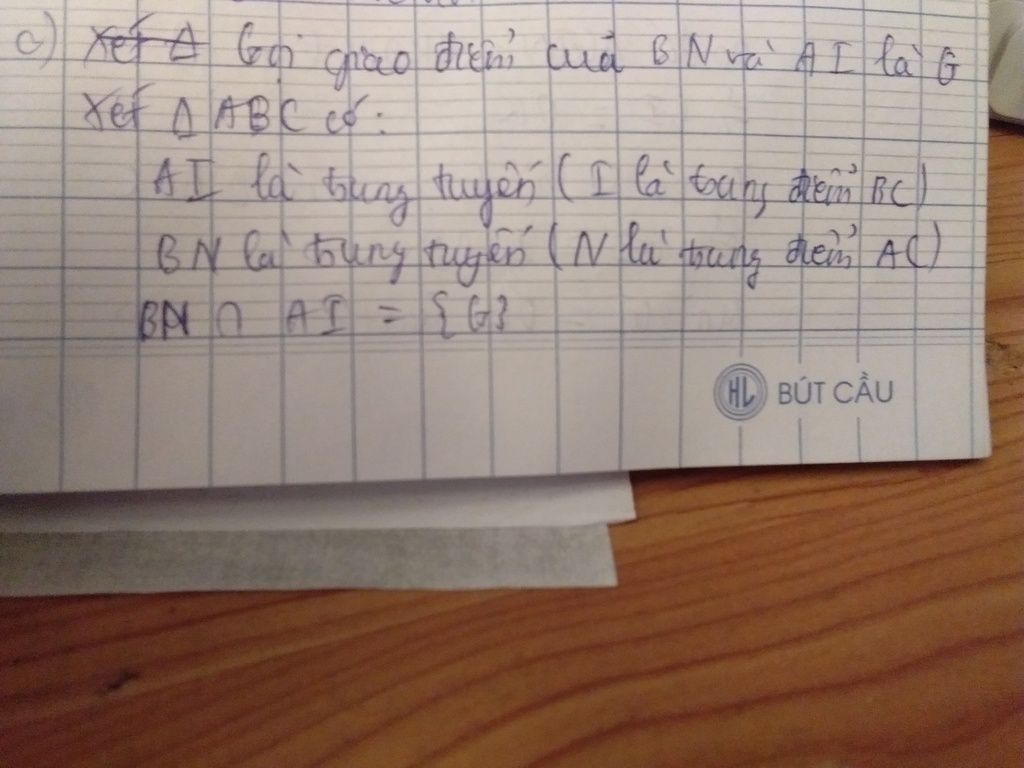 c) Xét Δ Gọi giao điểm của BN và AI là G
Xét Δ ABC có:
AI là trung tuyến (I là trung điểm BC)
BN là trung tuyến (N là trung điểm AC)
BN ∩ AI = {G}
HL BÚT CẦU